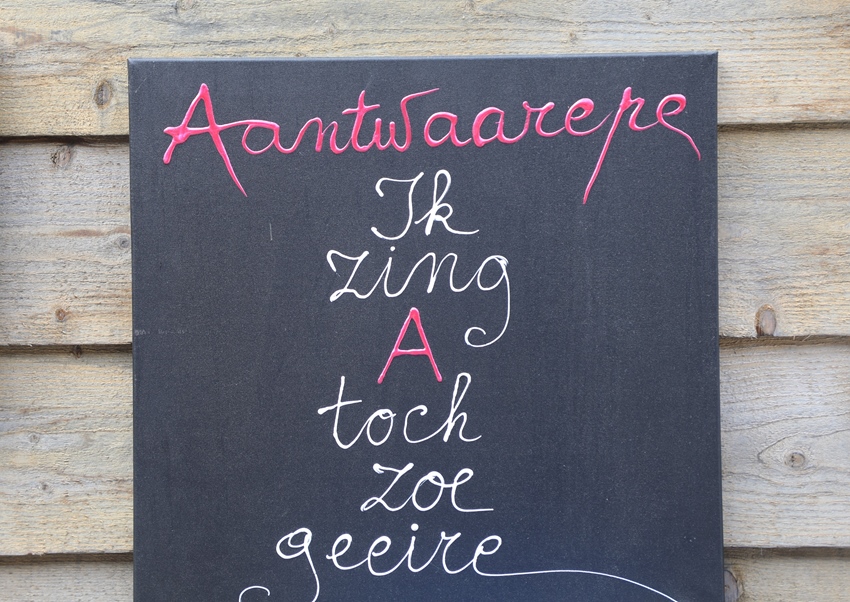 Aantwaarepe
Ik
zing
A
toch
zoe
geeire